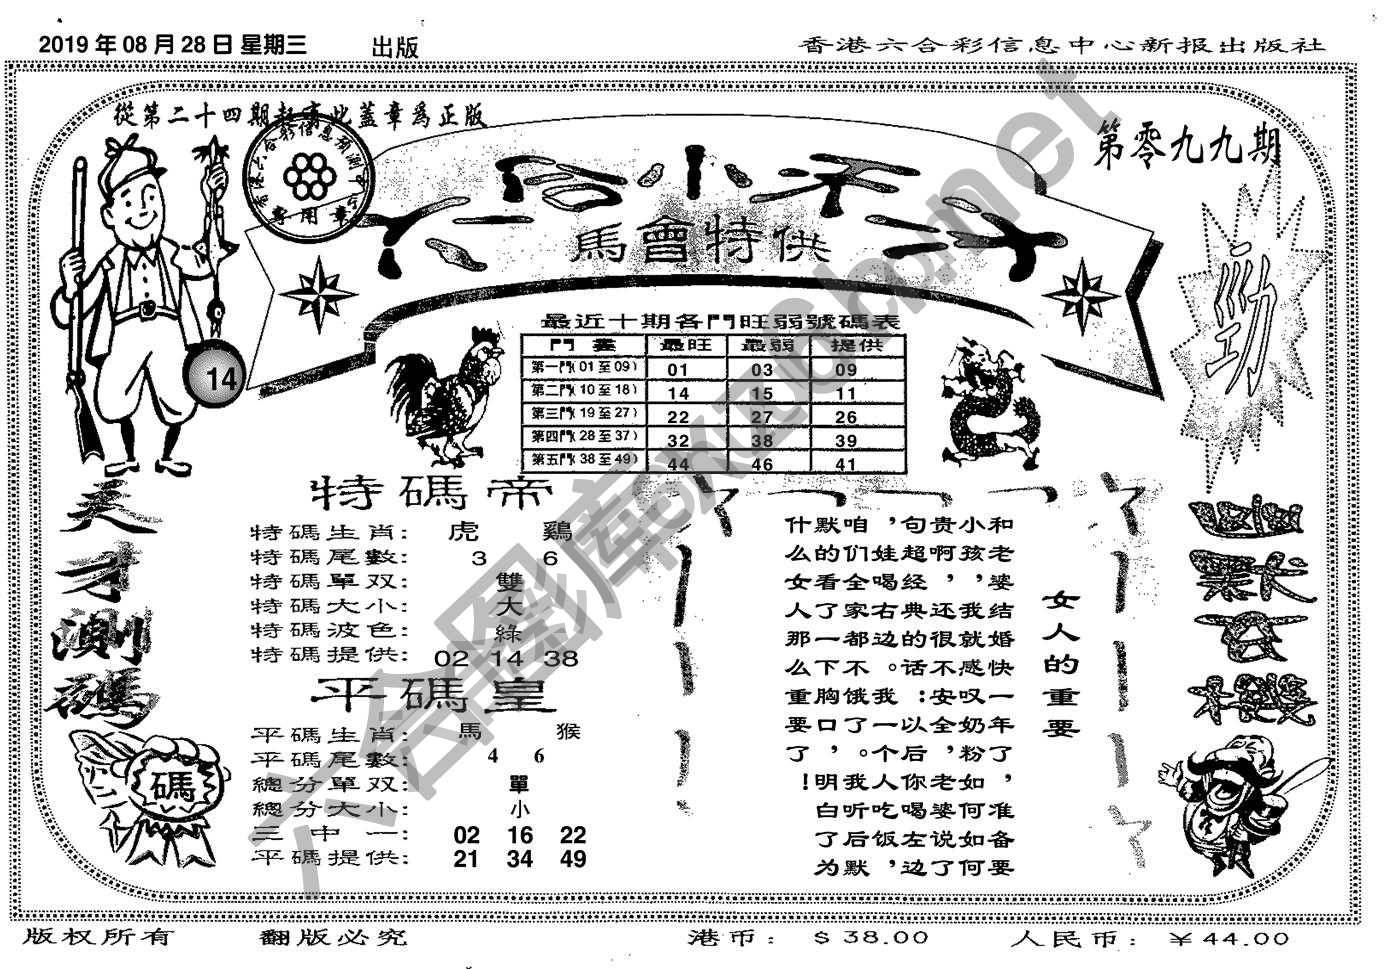 2019 年 08 月 28 日 星期三 出版
香港六合彩信息中心新报出版社
從第二十四期起寄此蓋章為正版
第零九九期
專用章
馬會特供
勁
14
最近十期各門旺弱號碼表
門 最旺 最弱 提供
第一門(01 至 09) 01 03 09
第二門(10 至 18) 14 15 11
第三門(19 至 27) 22 27 26
第四門(28 至 37) 32 38 39
第五門(38 至 49) 44 46 41
天才測碼
碼
特碼帝
特碼生肖: 虎 鷄
特碼尾數: 3 6
特碼單双: 雙
特碼大小: 大
特碼波色: 綠
特碼提供: 02 14 38
平碼皇
平碼生肖: 馬 猴
平碼尾數: 4 6
總分單双: 單
總分大小: 小
三中一: 02 16 22
平碼提供: 21 34 49
女人的重要
和老婆结婚快一年了，准备要
小孩，我就感叹奶粉如何如何
贵啊，还很不安全，老婆说了
句超经典的话：以后你喝左边
，娃喝右边。我一个人吃饭，
咱们全家都不饿了。我听后，默
默的看了一下胸口，明白了为
什么女人那么重要了！
版权所有 翻版必究 港币: $ 38.00 人民币: ￥44.00